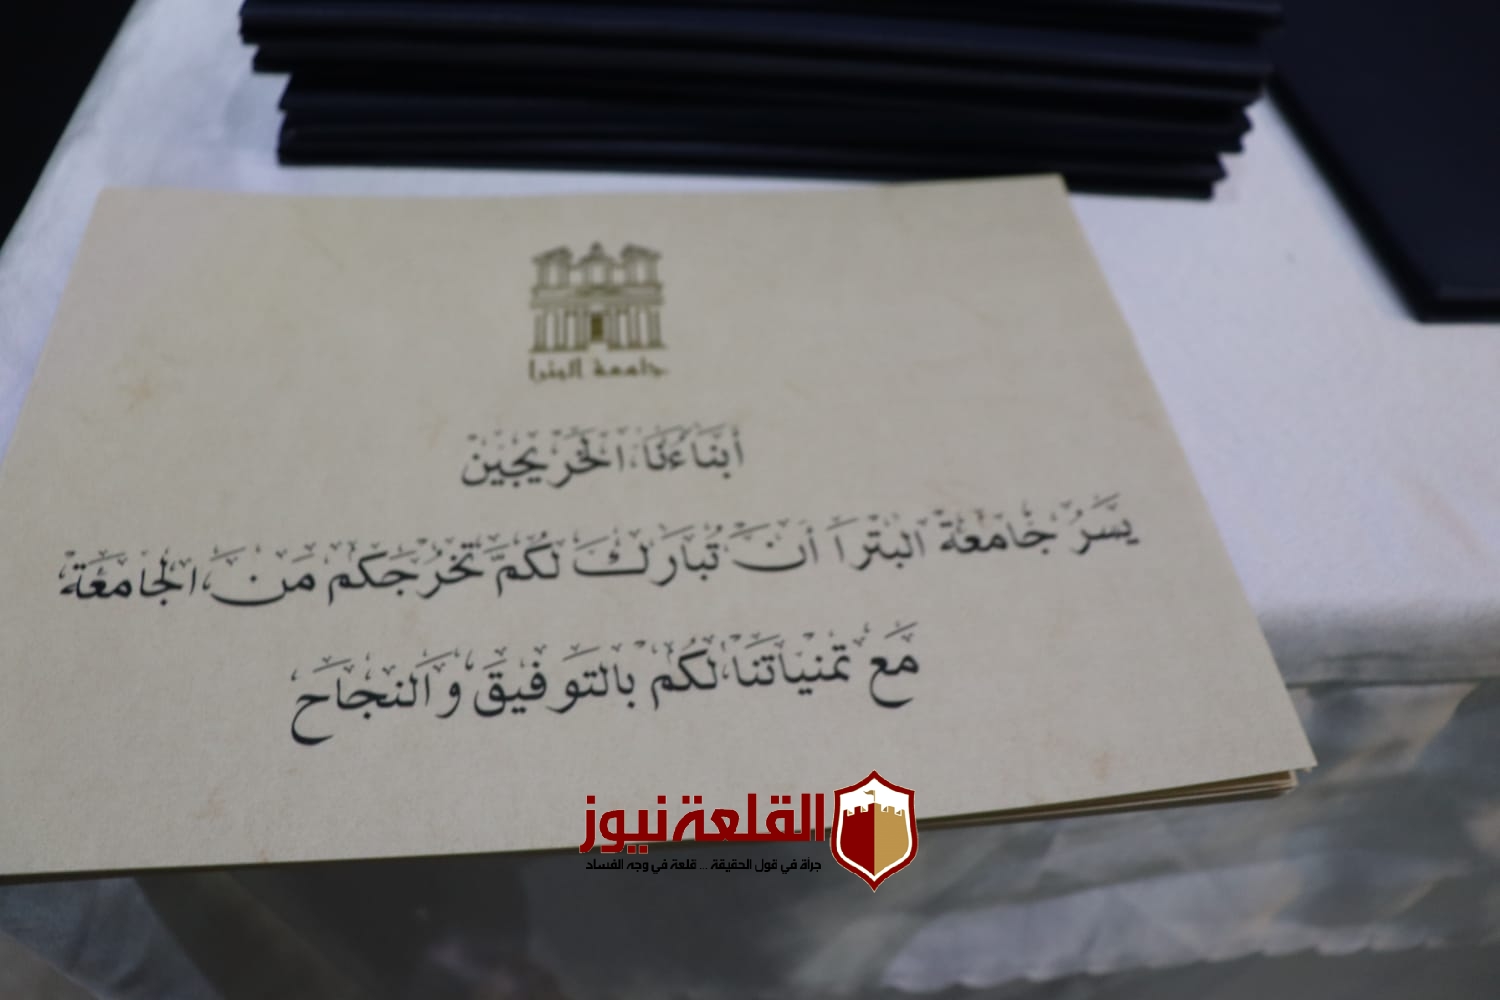 جامعة البترا
أبنَاءُنَا الخَريجين
يسَرُ جَامعَة البترا أن تُبَارك لكُم تخرُجَكم مَن الجَامعَة
مَع تمنيَاتنَا لكُم بالتَوفيقَ وَالنجَاح
القلعة نيوز
جرأة في قول الحقيقة ... قلعة في وجه الفساد